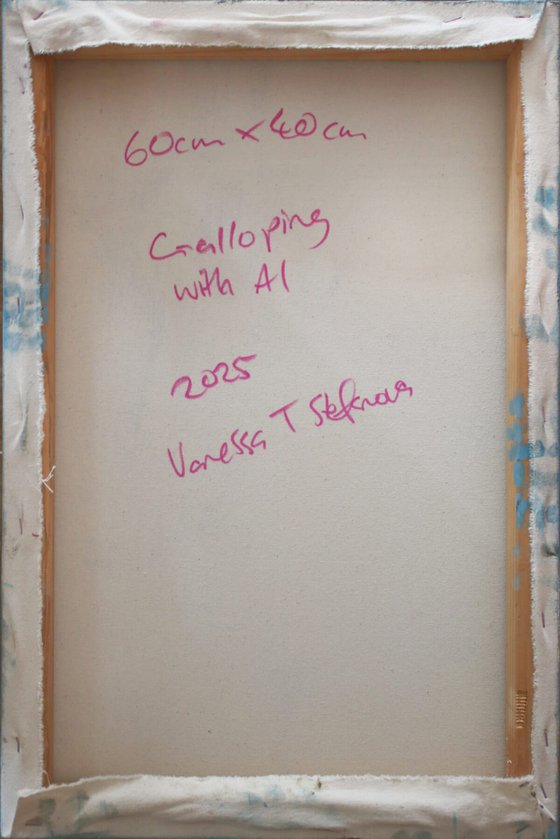 60cm x 40cm
Galloping
with AI
2025
Vanessa T Stefanova